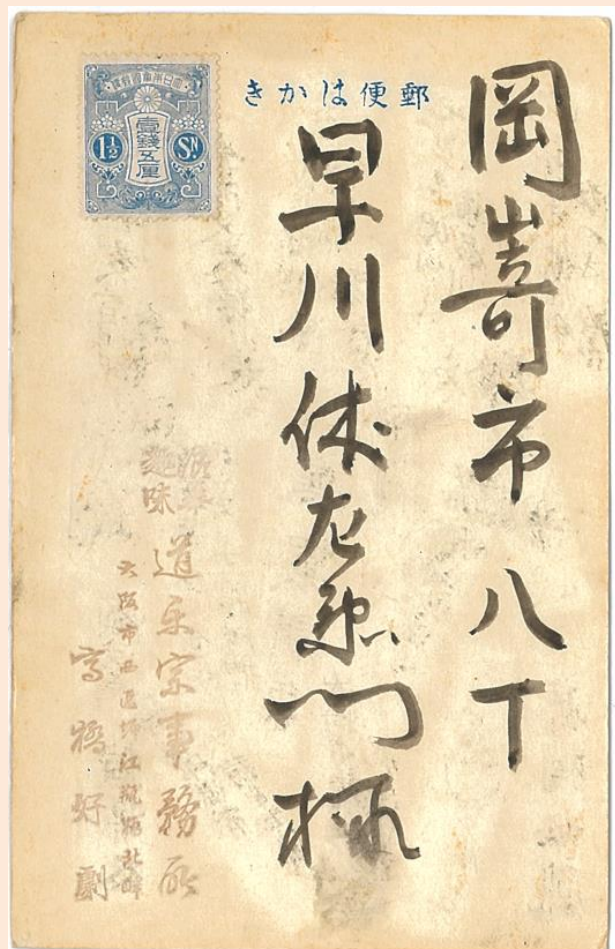 郵便はかき
大日本帝國郵便
壹錢五厘
1½ Sn.
岡嵜市八丁
早川休左衛門様
趣味
道楽宗事務所
大阪市西區堀江
高橋好劇